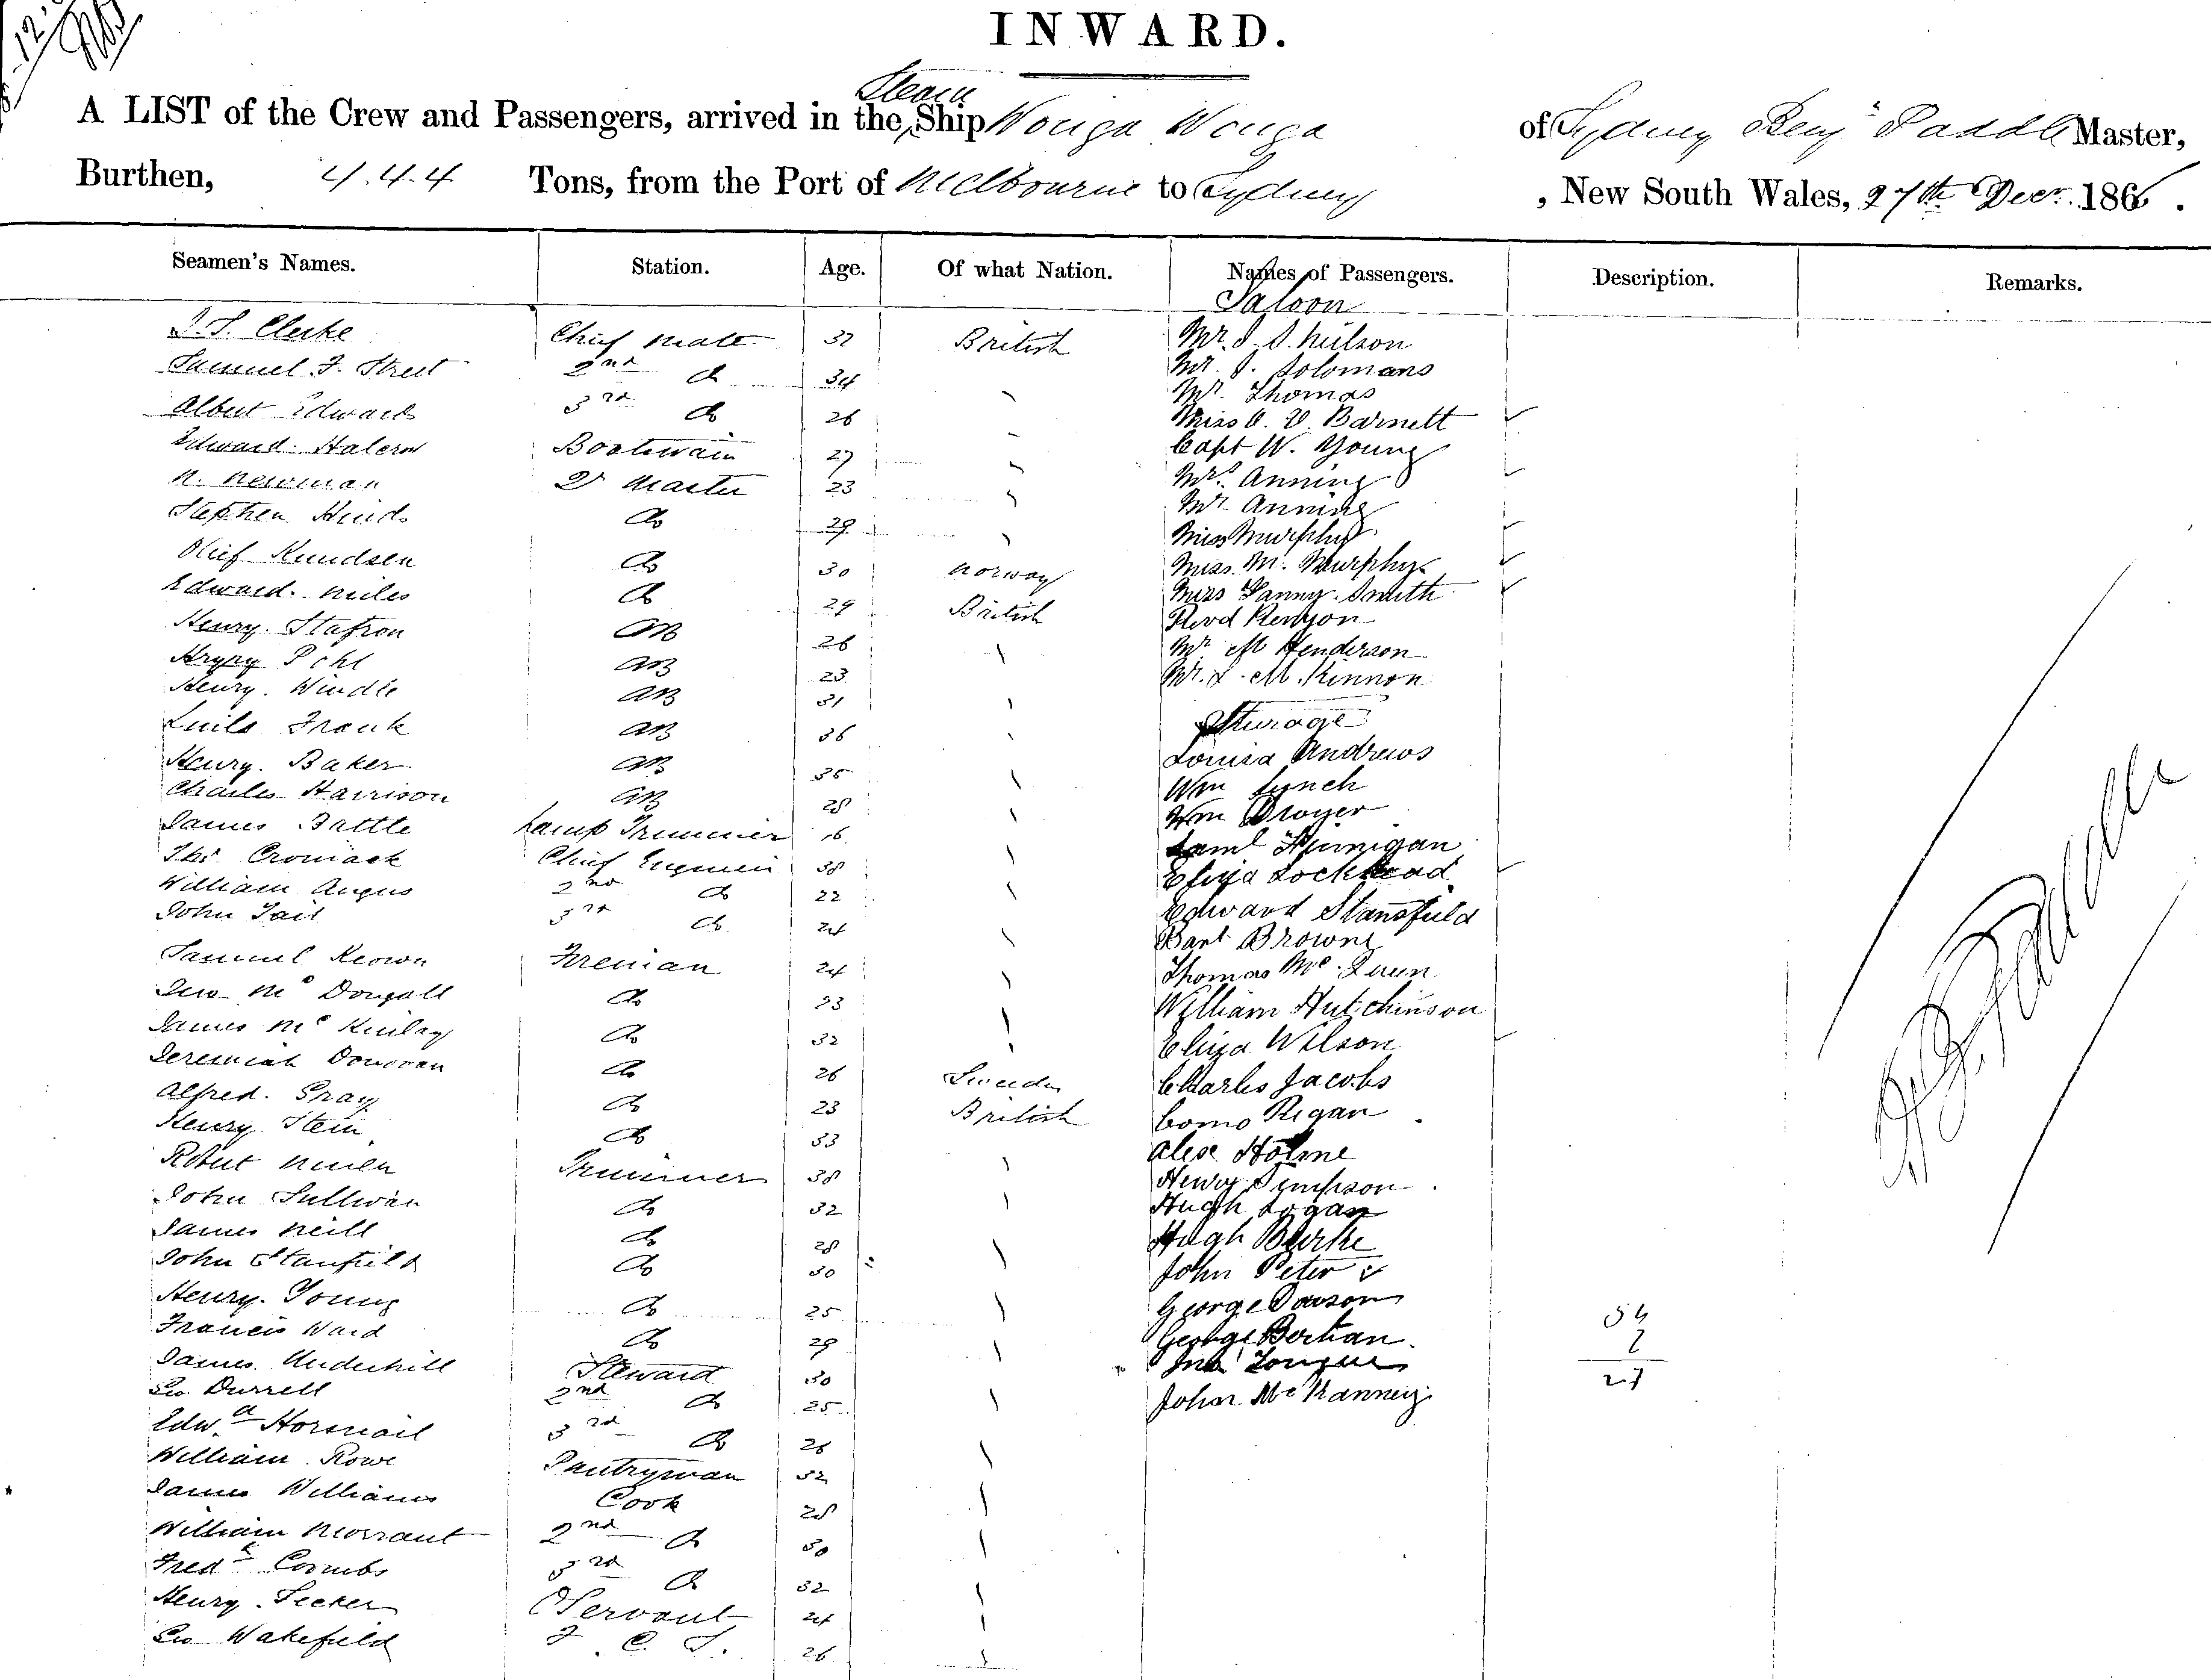 INWARD.
A LIST of the Crew and Passengers, arrived in the Steam Ship Wonga Wonga of Sydney Benj Paddle Master,
Burthen, 4.4.4 Tons, from the Port of Melbourne to Sydney, New South Wales, 27th Decr. 186
Seamen's Names. Station. Age. Of what Nation. Names of Passengers. Description. Remarks.
Saloon
Clerke Chief Mate British
Samuel F. Street 2nd do 34 Mr. J. Solomans
Albert Edwards 3rd do 26 Mr. Thomas
Miss Barnett
Edward Boatswain 27 Capt W. Young
N. Newman Qr Master 23 Mrs. Anning
Stephen Hinds do 29 Mr. Anning
Miss Murphy
Knudsen do 30 Norway Miss M. Murphy
Edward Miles do 29 British Miss Fanny Smith
Henry AB 26 Revd Kenyon
AB 23 Mr M Henderson
Henry Windle AB 31 Mr. McKinnon
Frank AB 36 Sturage
Henry Baker AB 35 Louisa Andrews
Charles Harrison AB 28 Wm Lynch
James Battle Lamp Trimmer 16 Wm
Thos Cromack Chief 38
William Angus 2nd do 22 Eliza Lockhead
John Tait 3rd do 24 Edward Stansfield
Samuel Keown Fireman 24 Bart Browne
Geo McDougall do 23 Thomas Mc
James McKinlay do 32 William Hutchinson
Jeremiah Donovan do 26 Sweden Eliza Wilson
Alfred Gray do 23 British Charles Jacobs
Henry Stein do 33 Como Regan
Robert Trimmer 38 Alex Holme
John Sullivan do 32 Henry Simpson
James Neill do 28 Hugh Logan
John Stanfield do 30 Hugh Burke
Henry Young do 25 John Peter
Francis Ward do 29 George Dawson
James Underhill Steward 30 George
Geo Durrell 2nd do 25
Edwd Horsnail 3rd do 26 John McKanney
William Rowe Pantryman 32
James Williams Cook 28
William Morrant 2nd do 30
Fredk Coombs 3rd do 32
Henry Servant 24
Geo Wakefield 26